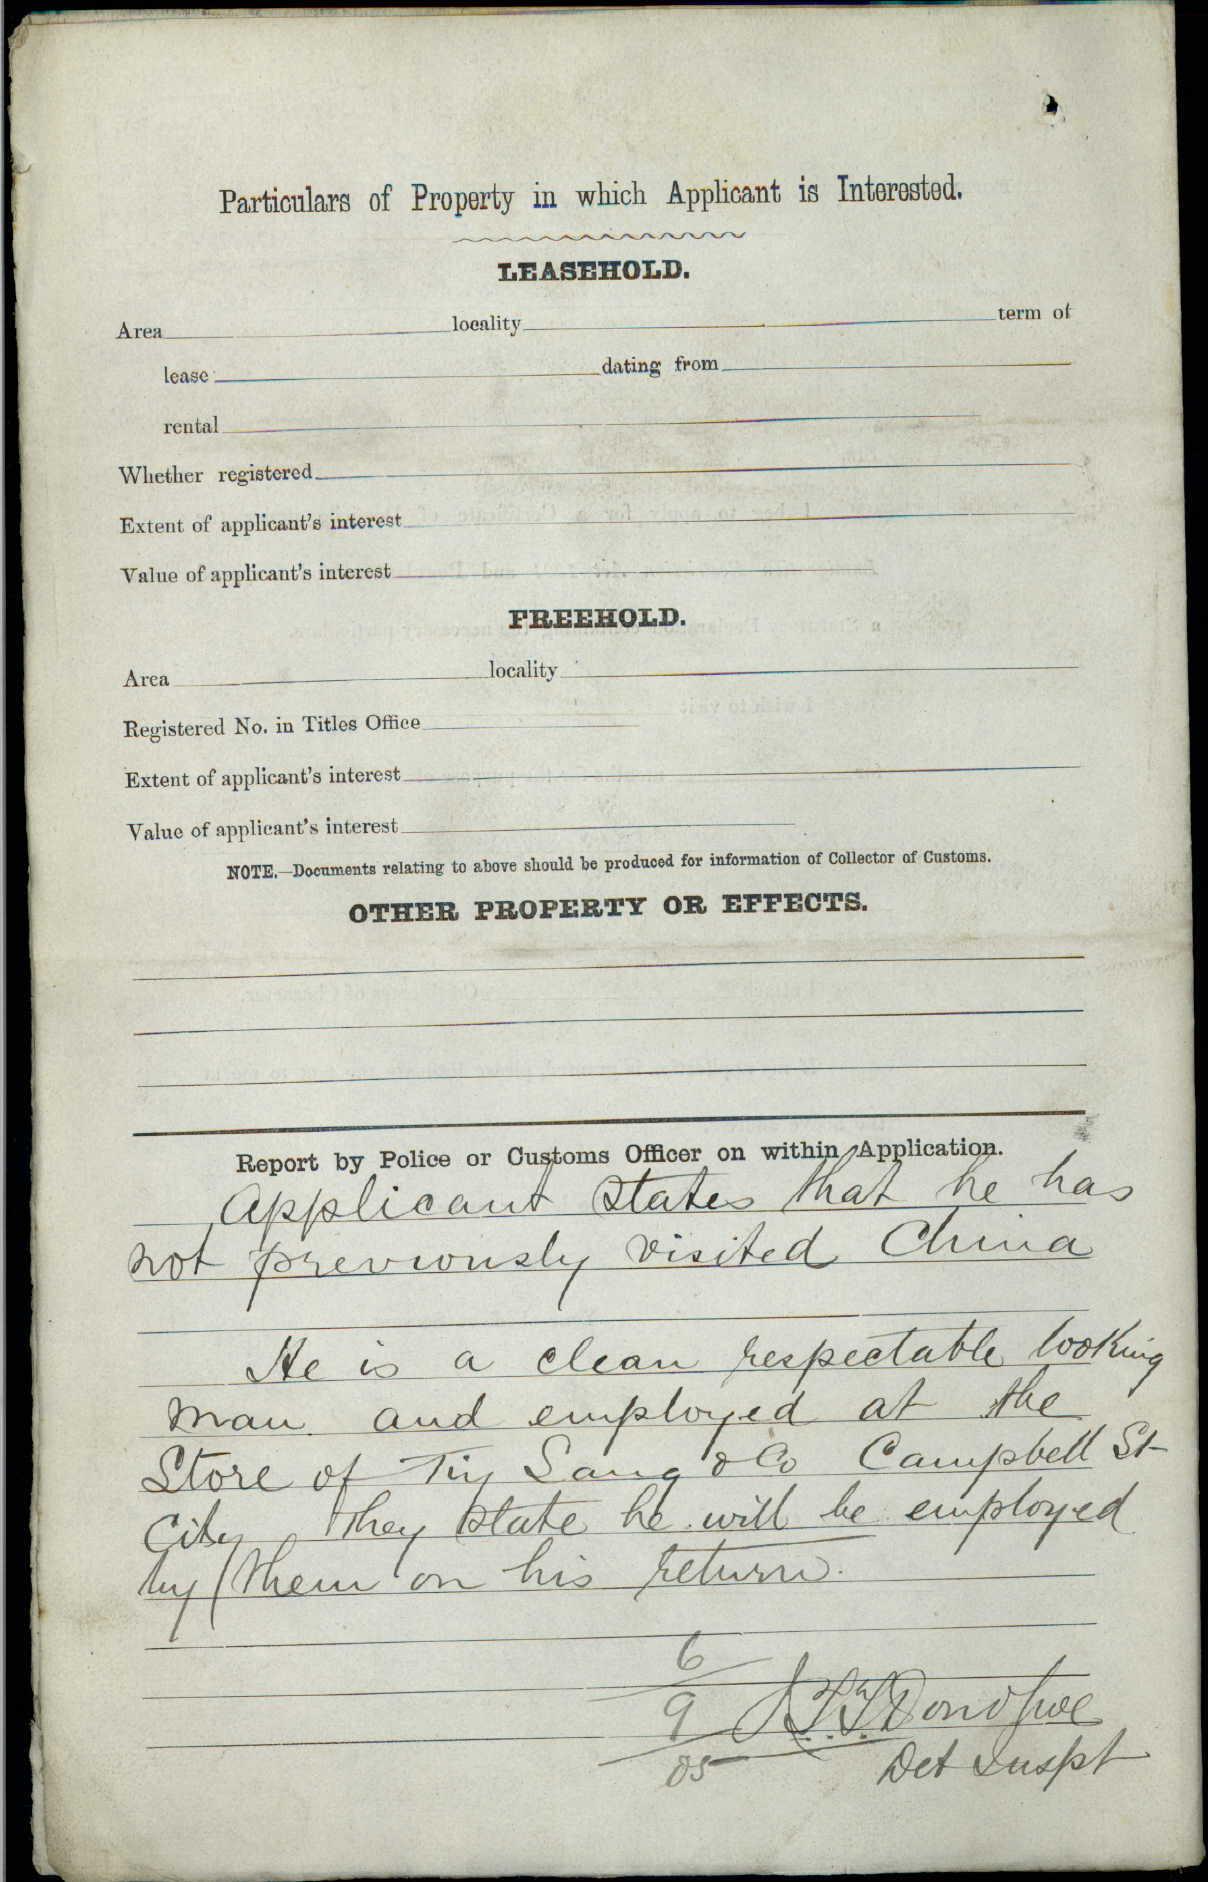 Particulars of Property in which Applicant is Interested.
LEASEHOLD.
Area locality term of
lease dating from
rental
Whether registered
Extent of applicant's interest
Value of applicant's interest
FREEHOLD.
Area locality
Registered No. in Titles Office
Extent of applicant's interest
Value of applicant's interest
NOTE.—Documents relating to above should be produced for information of Collector of Customs.
OTHER PROPERTY OR EFFECTS.
Report by Police or Customs Officer on within Application.
Applicant states that he has
not previously visited China
He is a clean respectable looking
man and employed at the
Store of Tiy Sang & Co Campbell St
City they state he will be employed
by them on his return.
6
9 Donohoe
05 Det Inspt